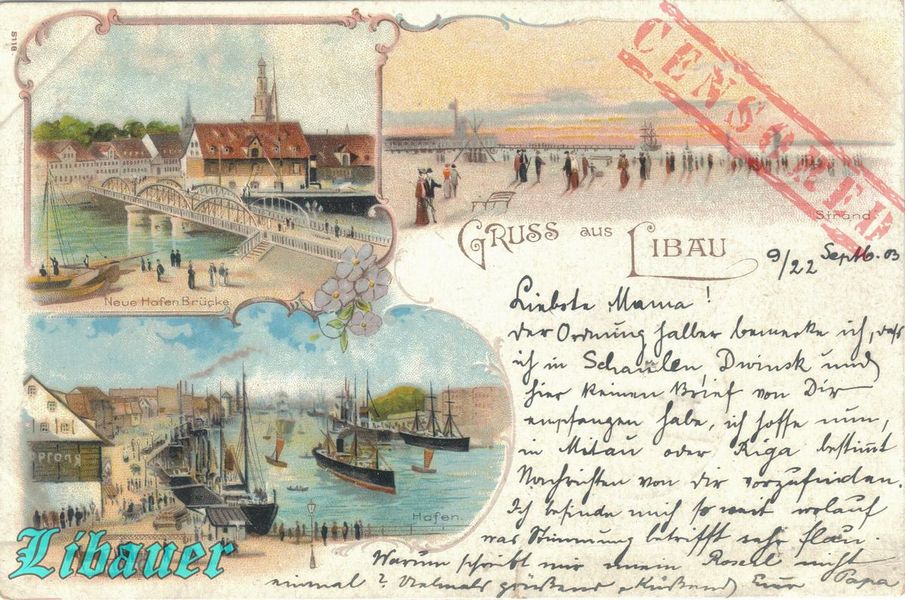 8118
CENSORED
Strand.
Neue Hafen Brücke
GRUSS AUS LIBAU
9/22 Septb. 03
Liebste Mama!
der Ordnung halber bemerke ich, daß
ich in Schaulen, Dwinsk und
hier keinen Brief von Dir
empfangen habe, ich hoffe nun,
in Mitau oder Riga bestimmt
Nachrichten von dir vorzufinden.
Ich befinde mich soweit wolauf
was Stimmung betrifft sehr flau.
Warum schreibt mir mein Roserl nicht
einmal? Vielmals grüßend & küßend Euer Papa
Hafen.
Libauer